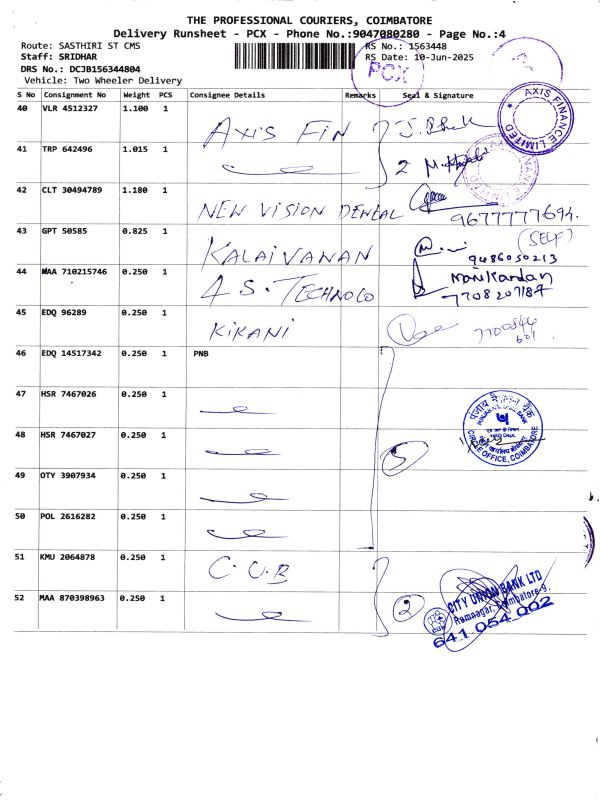 THE PROFESSIONAL COURIERS, COIMBATORE
Delivery Runsheet - PCX - Phone No.:9047080280 - Page No.:4
Route: SASTHIRI ST CMS
RS No.: 1563448
Staff: SRIDHAR
RS Date: 10-Jun-2025
DRS No.: DCJB156344804
Vehicle: Two Wheeler Delivery
PCX
S No Consignment No Weight PCS Consignee Details Remarks Seal & Signature
40 VLR 4512327 1.100 1 AXIS FIN
AXIS FINANCE LIMITED
41 TRP 642496 1.015 1 2
42 CLT 30494789 1.180 1 NEW VISION DENTAL
9677777694.
(SELF)
43 GPT 50585 0.825 1 KALAIVANAN
9486050213
44 MAA 710215746 0.250 1 4 S. TECHNOLO
Manikandan
7708207187
45 EDQ 96289 0.250 1 KIKANI
46 EDQ 14517342 0.250 1 PNB
47 HSR 7467026 0.250 1
पंजाब नैशनल बैंक
PUNJAB NATIONAL BANK
CIRCLE OFFICE, COIMBATORE
48 HSR 7467027 0.250 1 5
49 OTY 3907934 0.250 1
50 POL 2616282 0.250 1
51 KMU 2064878 0.250 1 C.U.B
52 MAA 870398963 0.250 1 2
CITY UNION BANK LTD
Ramnagar, Coimbatore-9.
641 054 002
CUB